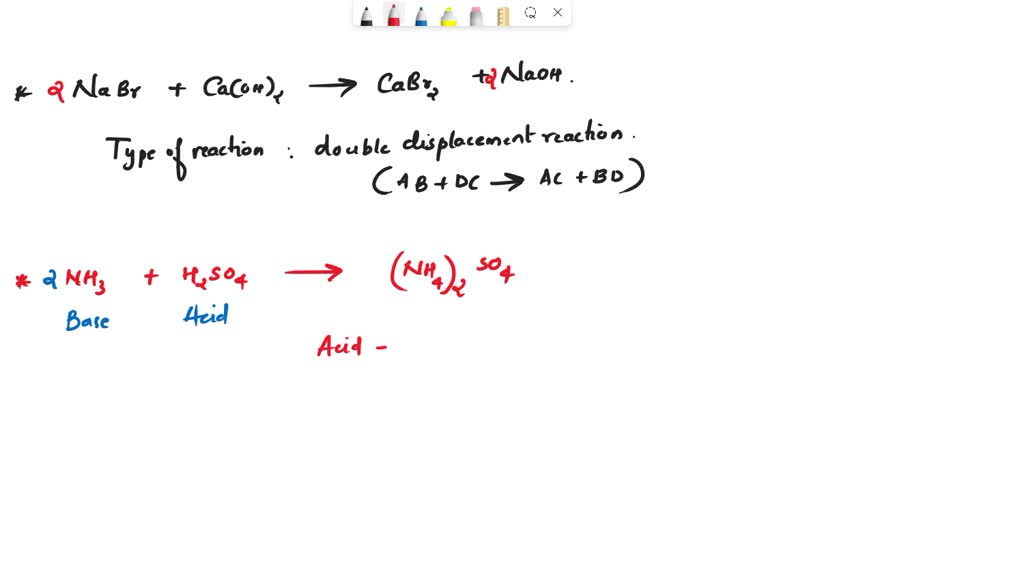 * 2 NaBr + Ca(OH)₂ → CaBr₂ + 2 NaOH.
Type of reaction : double displacement reaction.
(AB + DC → AC + BD)
* 2 NH₃ + H₂SO₄ → (NH₄)₂ SO₄
Base Acid
Acid -